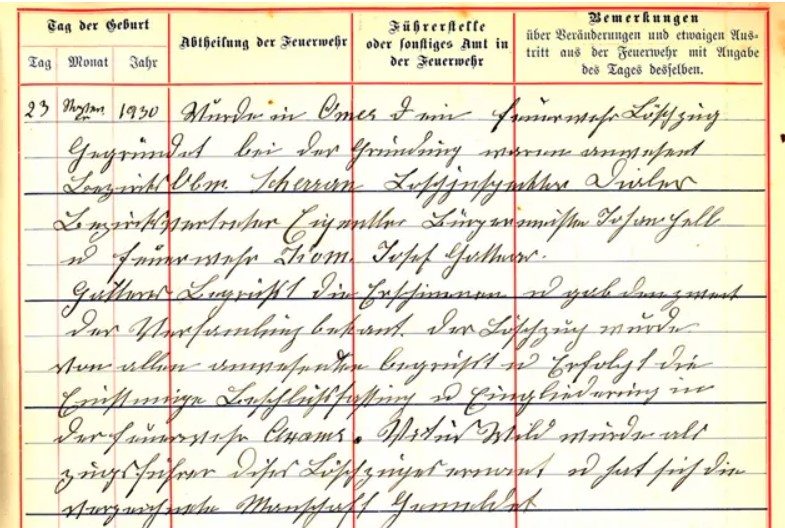 Tag der Geburt
Abtheilung der Feuerwehr
Führerstelle
oder sonstiges Amt in
der Feuerwehr
Bemerkungen
über Veränderungen und etwaigen Aus-
tritt aus der Feuerwehr mit Angabe
des Tages desselben.
Tag Monat Jahr
23 1930 Wurde in Omes ein Feuerwehr Löschzug
Gegründet bei der Gründung waren anwesent
Bezirks Obm. Löschinspektor
Bezirksvertreter Bürgermeister Hell
u Feuerwehr Josef
Begrüßt die Erschienen u gab den zweck
der Versamlung bekant. der Löschzug wurde
von allen anwesenden begrüßt u Erfolgt die
Einstimige Beschlußfassung u Eingliederung in
der Feuerwehr Axams. Vitus Wild wurde als
zugsführer dises Löschzuges ernant u hat sich die
verzeichnete Manschaft Gemeldet